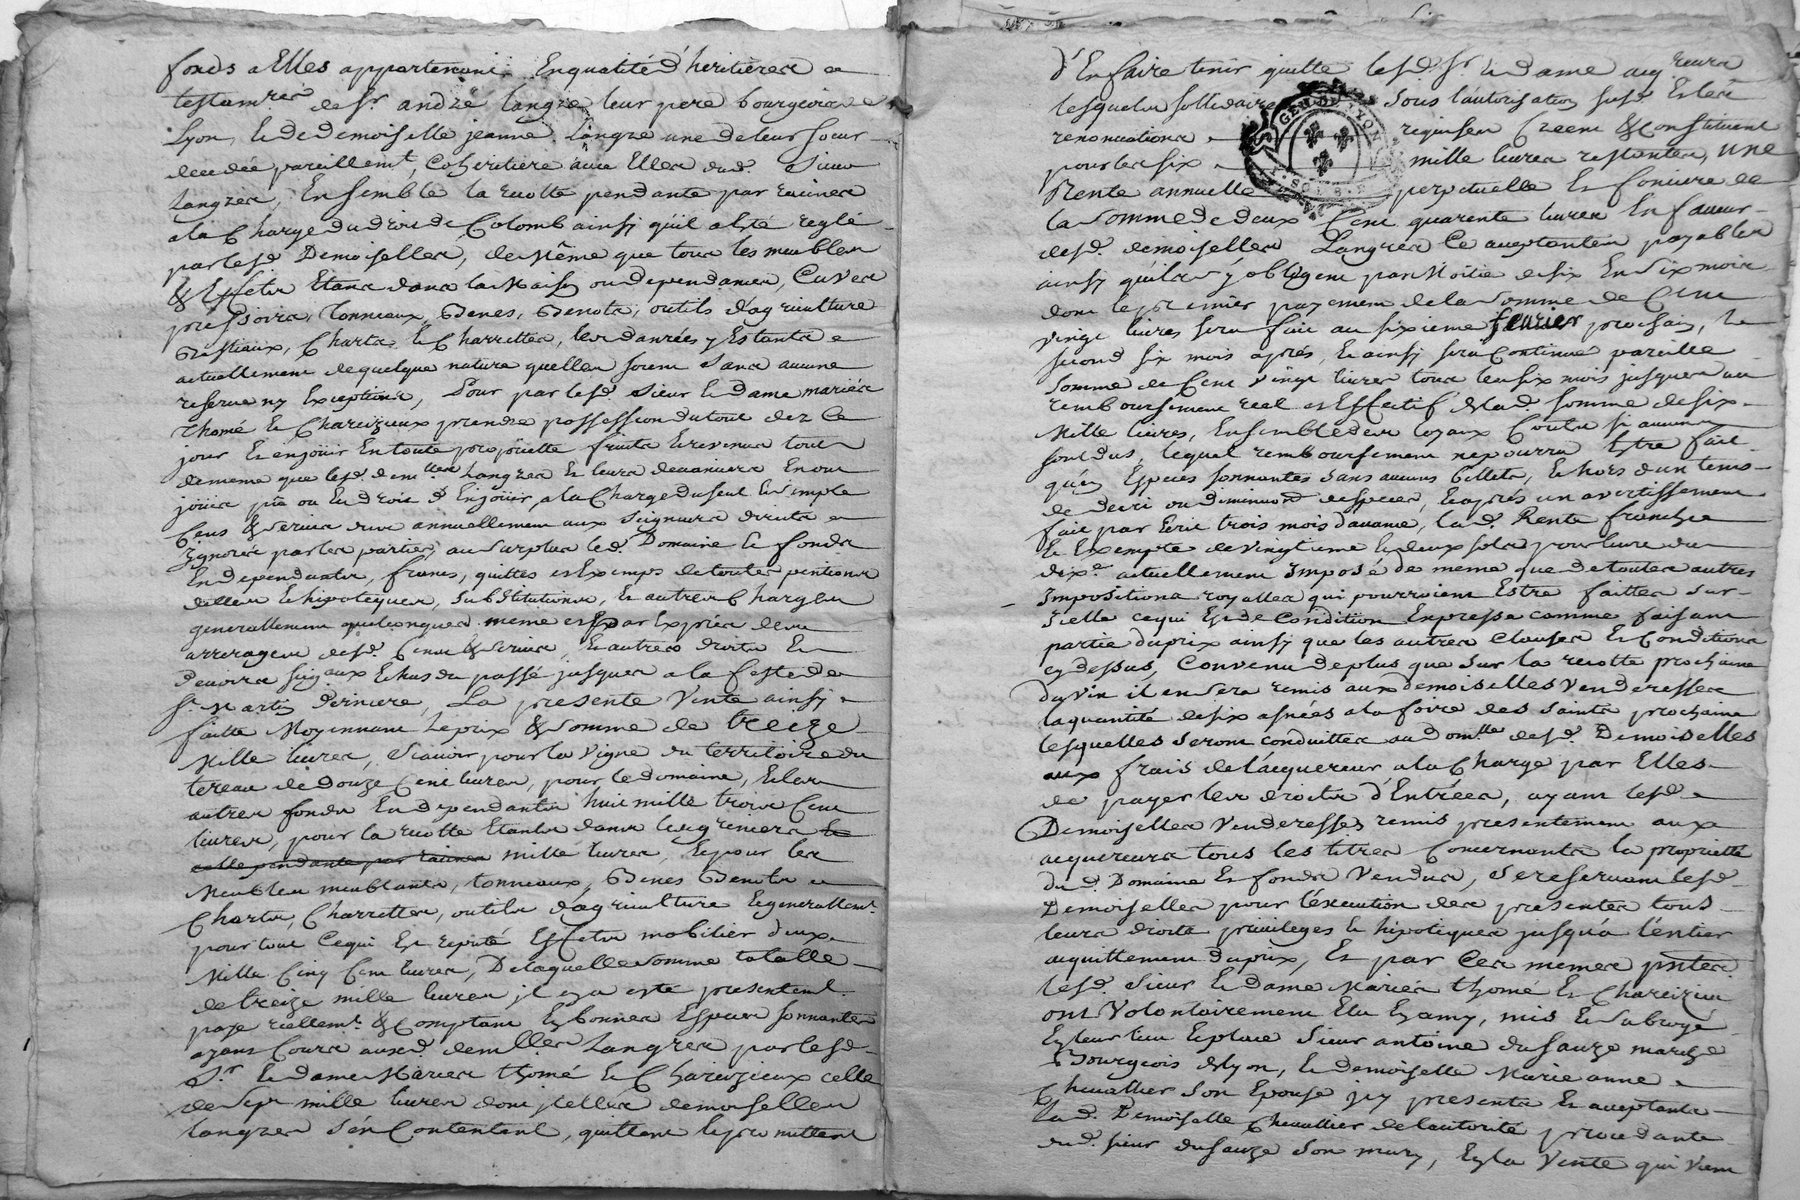 fonds a Elles appartenant Enqualité d'heritieres
testamres de Sr andré Langre leur pere bourgeois de
Lyon, & de demoiselle jeanne Langre une de leur soeur
decedée pareillemt. Coheritiere avec Elles dud. Sieur
Langre, Ensemble la recolte pendante par racines
a la Charge du droit de Colomb ainsy quil a été reglé
par lesd. Demoiselles, de Même que tous les meubles
& Effets Etans dans la Maison ou dependances, Cuves
pressoirs, tonneaux, Benes, Benots, outils d'agriculture
Bestiaux, Chars & Charrettes, les danrées y Estants
actuellement de quelque nature quelles soient sans aucune
reserve ny Exceptions, Pour par lesd. sieur & dame mariés
thomé & Charézieux prendre possession du tout dez ce
jour & en jouir En toute proprietté fruits & revenus tout
de meme que lesd. demlles Langres & leurs devanciers En ont
joüi pû ou Eu droit d'En jouir, a la Charge du seul & simple
Cens & servis due annuellement aux seigneurs directs
Ignorés par les parties, au surplus led. Domaine & fonds
En dependants, francs, quittes & Exempts de toutes pentions
dettes & hipoteques, substitutions, & autres Charges
generallement quelconques même Expar Exprès de
arrerages desd. Cens & servis, & autres droits &
devoirs seigaux Echus du passé jusques a la feste de
St. Martin Derniere, La presente Vente ainsy
faitte Moyennant le prix & somme de treize
Mille livres, Scavoir pour la Vigne du territoire du
tereau de douze Cent livres, pour le domaine, & les
autres fonds En dependants huit mille trois Cent
livres, pour la recolte Etants dans les greniers &
celle pendante par racines mille livres, & pour les
Meubles meublants, tonneaux, Benes Benots
Chars, Charrettes, outils d'agriculture & generallemt.
pour tout Cequi Est reputé Effets mobilier deux
Mille Cinq Cent livres, De laquelle somme totalle
de treize mille livres il en a eté presentemt.
payé réellemt. & Comptant En bonnes Especes sonnantes
ayans Cours ausd. demlles Langres par lesd.
Sr. & dame Mariés thomé & Charézieux celle
de Sept mille livres dont jcelles demoiselles
langres s'en Contentent, quittent & promettent
d'En faire tenir quitte lesd. Sr. & dame acquereurs
lesquels sollidaire sous l'autorisation susd. & les
renonciations requises Créent & Constituent
pour les six mille livres restantes, une
Rente annuelle perpetuelle & fonciere de
la somme de deux Cent quarente livres En faveur
desd. demoiselles Langres Ce acceptantes payables
ainsy quils s'y obligent par Moitié de six En six mois
dont le premier payement de la somme de Cent
vingt livres sera fait au sixieme fevrier prochain, le
second six mois après, & ainsy sera Continué pareille
somme de Cent Vingt livres tous les six mois jusques au
remboursement reel & Effectif de lad. somme de six
Mille livres, Ensemble des loyaux Couts si aucuns
sont dus, lequel remboursement ne pourra Estre fait
qu'en Especes sonnantes sans aucuns billets, & hors d'un tems
de decri ou diminuon despeces, & après un avertissement
fait par Ecrit trois mois d'avance, lad. Rente franche
& Exempte de vingtieme & deux sols pour livre du
dixe. actuellement Imposé de meme que de toutes autres
Impositions royalles qui pourroient Estre faittes sur
Icelle cequi Est de Condition Expresse comme faisant
partie du prix ainsy que les autres Clauses & Conditions
cy dessus, Convenu de plus que sur la recolte prochaine
du vin il en sera remis aux demoiselles Venderesses
la quantité de six asnées a la foire des saints prochaine
lesquelles seront conduittes au domlle desd. Demoiselles
aux frais de l'acquereur a la Charge par Elles
de payer les droits d'Entrées, ayant lesd.
Demoiselles Venderesses remis presentement aux
acquereurs tous les titres Concernants la proprietté
dud. Domaine & fonds Vendus, se reservant lesd.
Demoiselles pour l'éxecution des presentes tous
leurs droits privileges & hipoteques jusqu'a l'entier
acquittement du prix, Et par Ces memes pntes
lesd. Sieur & Dame Mariés thomé & Charézieu
ont Volontairement Elu En amy, mis & subrogé
En leur lieu & place Sieur antoine du sauze marchd.
Bourgeois de Lyon, & demoiselle Marie anne
Chevallier Son Epouse icy presents & acceptants
Lad. Demoiselle Chevallier de l'autorité procedante
dud. sieur dusauze son mary, En la Vente qui Vient